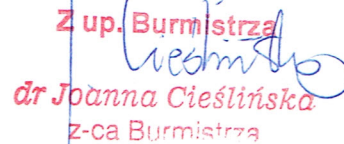 Z up. Burmistrza
Cieślińska
dr Joanna Cieślińska
z-ca Burmistrza